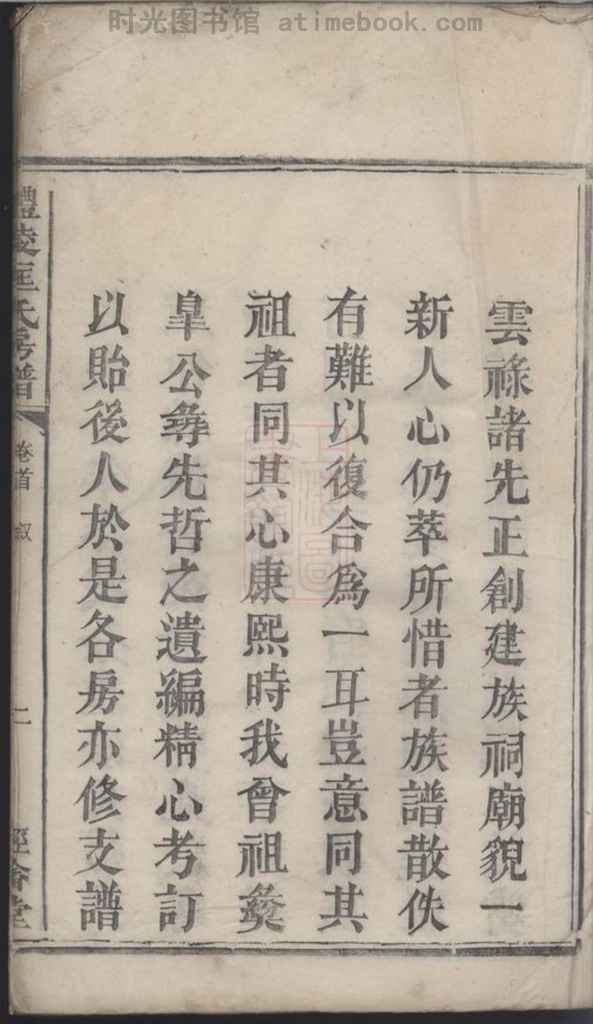 时光图书馆 atimebook.com
雲祿諸先正創建族祠廟貌一
新人心仍萃所惜者族譜散佚
有難以復合為一耳豈意同其
祖者同其心康熙時我曾祖彜
皐公彜先哲之遺編精心考訂
以貽後人於是各房亦修支譜
醴陵匡氏房譜
卷首
二